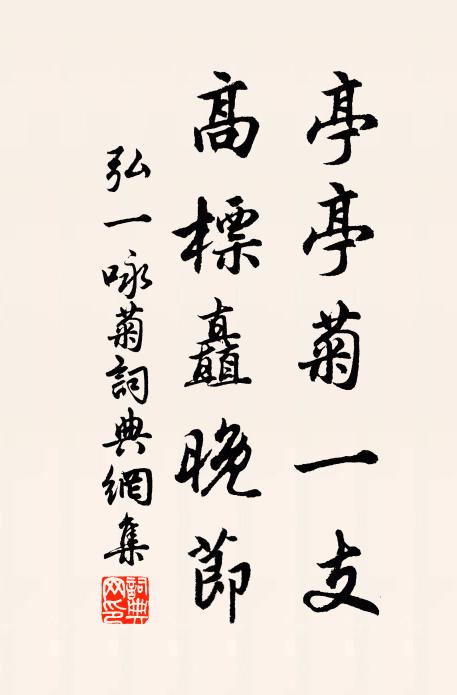 亭亭菊一支
高標矗晚節
弘一咏菊詞典網集
詞典網印